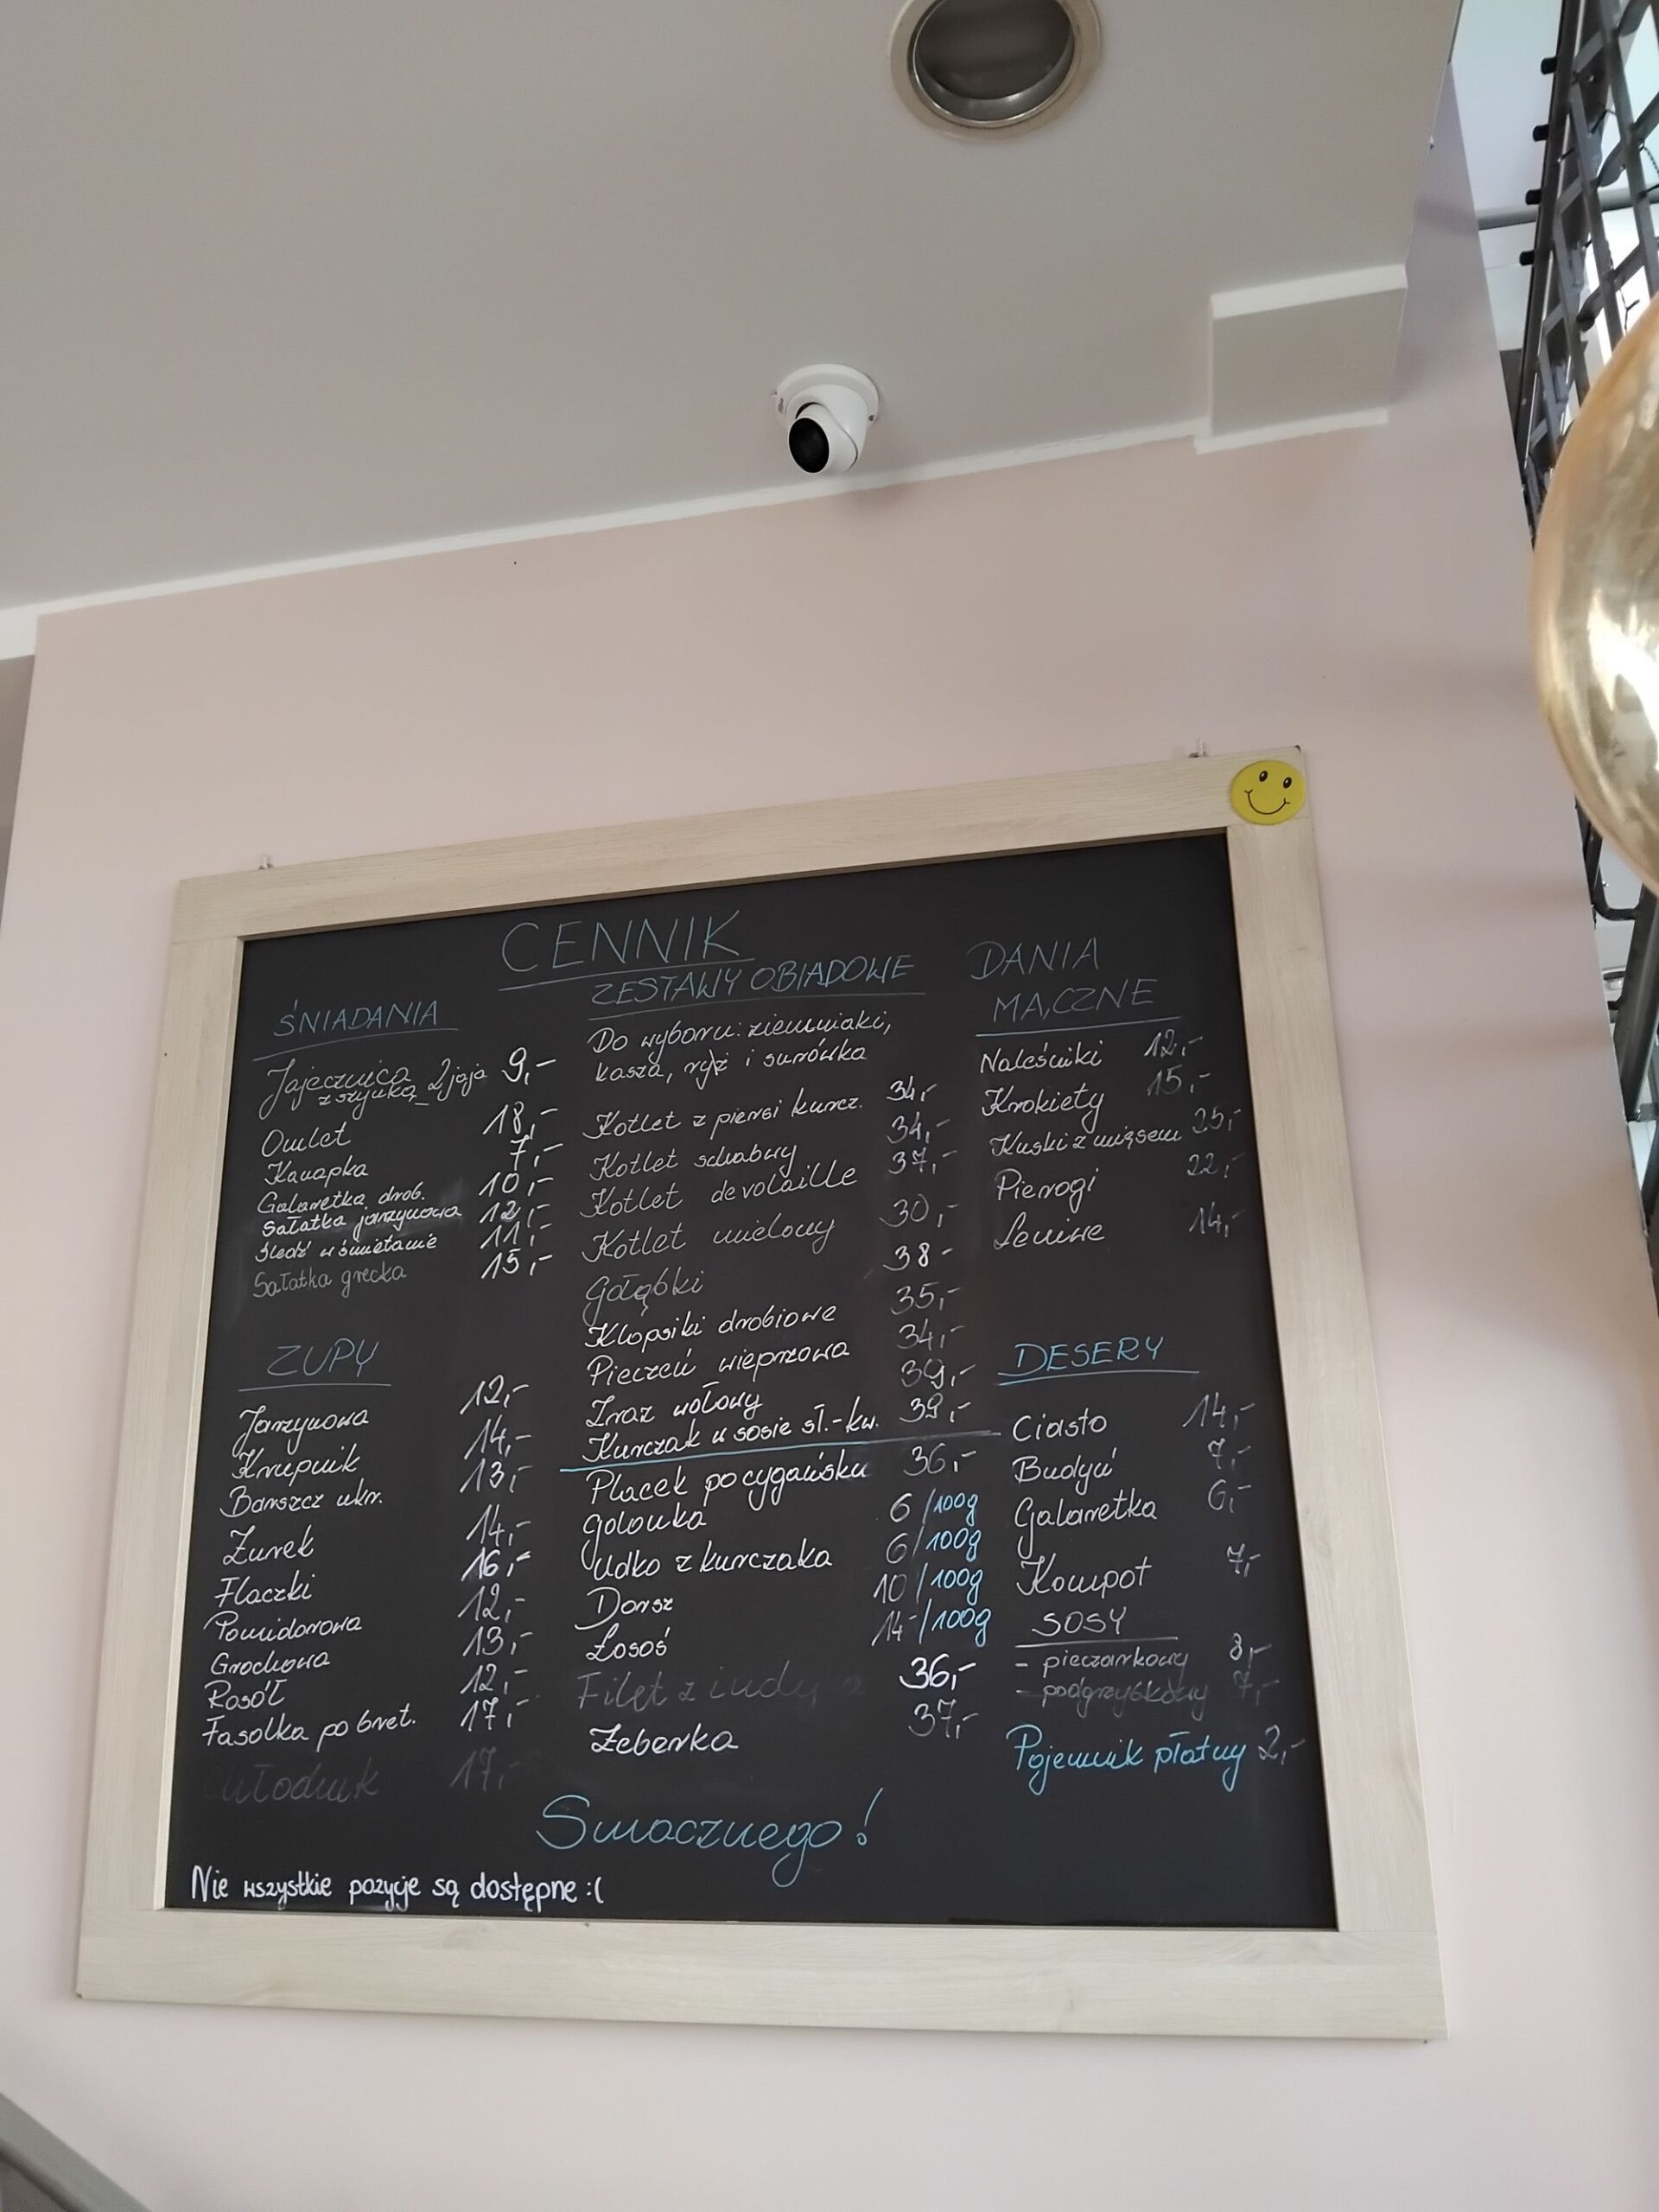 CENNIK
ŚNIADANIA
Jajecznica 2 jaja 9,-
z szynką
Omlet 18,-
Kanapka 7,-
Galaretka drob. 10,-
Sałatka jarzynowa 12,-
Śledź w śmietanie 11,-
Sałatka grecka 15,-
ZUPY
Jarzynowa 12,-
Krupnik 14,-
Barszcz ukr. 13,-
Żurek 14,-
Flaczki 16,-
Pomidorowa 12,-
Grochowa 13,-
Rosół 12,-
Fasolka po bret. 17,-
17,-
ZESTAWY OBIADOWE
Do wyboru: ziemniaki,
kasza, ryż i surówka
Kotlet z piersi kurcz. 34,-
Kotlet schabowy 34,-
Kotlet devolaille 37,-
Kotlet mielony 30,-
Gołąbki 38-
Klopsiki drobiowe 35,-
Pieczeń wieprzowa 34,-
Zraz wołowy 39,-
Kurczak w sosie sł.-kw. 39,-
Placek po cygańsku 36,-
Golonka 6/100g
Udko z kurczaka 6/100g
Dorsz 10/100g
Łosoś 14/100g
Filet z indyka 36,-
Żeberka 37,-
DANIA
MĄCZNE
Naleśniki 12,-
Krokiety 15,-
Kluski z mięsem 25,-
Pierogi 22,-
Leniwe 14,-
DESERY
Ciasto 14,-
Budyń 7,-
Galaretka 6,-
Kompot 7,-
SOSY
- pieczarkowy 8,-
- podgrzybkowy 7,-
Pojemnik płatny 2,-
Smacznego!
Nie wszystkie pozycje są dostępne :(